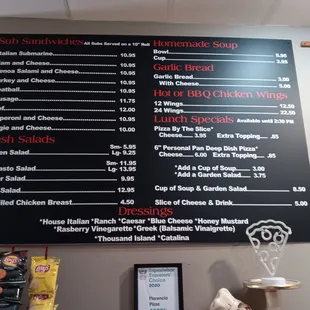 Sub Sandwiches All Subs Served on a 10" Roll
Italian Submarine 10.95
Ham and Cheese 10.95
Genoa Salami and Cheese 10.95
Turkey and Cheese 10.95
Meatball 10.95
Sausage 11.75
12.00
Pepperoni and Cheese 10.95
Veggie and Cheese 10.00
Fresh Salads
Garden Salad Sm- 5.95
Lg- 9.25
Sm- 11.95
Antipasto Salad Lg- 13.95
Salad 9.95
Salad 12.95
Grilled Chicken Breast 4.50
Homemade Soup
Bowl 5.95
Cup 3.95
Garlic Bread
Garlic Bread 3.00
With Cheese 5.00
Hot or BBQ Chicken Wings
12 Wings 12.50
24 Wings 22.50
Lunch Specials Available until 2:30 PM
Pizza By The Slice*
Cheese 3.95 Extra Topping .85
6" Personal Pan Deep Dish Pizza*
Cheese 6.00 Extra Topping .85
*Add a Cup of Soup 3.00
*Add a Garden Salad 3.75
Cup of Soup & Garden Salad 8.50
Slice of Cheese & Drink 5.00
Dressings
*House Italian *Ranch *Caesar *Blue Cheese *Honey Mustard
*Rasberry Vinegarette *Greek (Balsamic Vinaigrette)
*Thousand Island *Catalina
Lay's
Lay's
Choice
2020
Florencia
Pizza